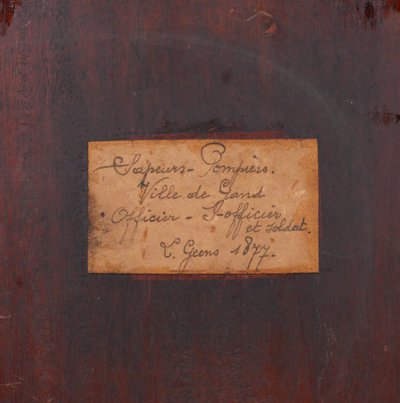 Sapeurs-Pompiers.
Ville de Gand
Officier - S-officier
et soldat.
L. Geens 1877.